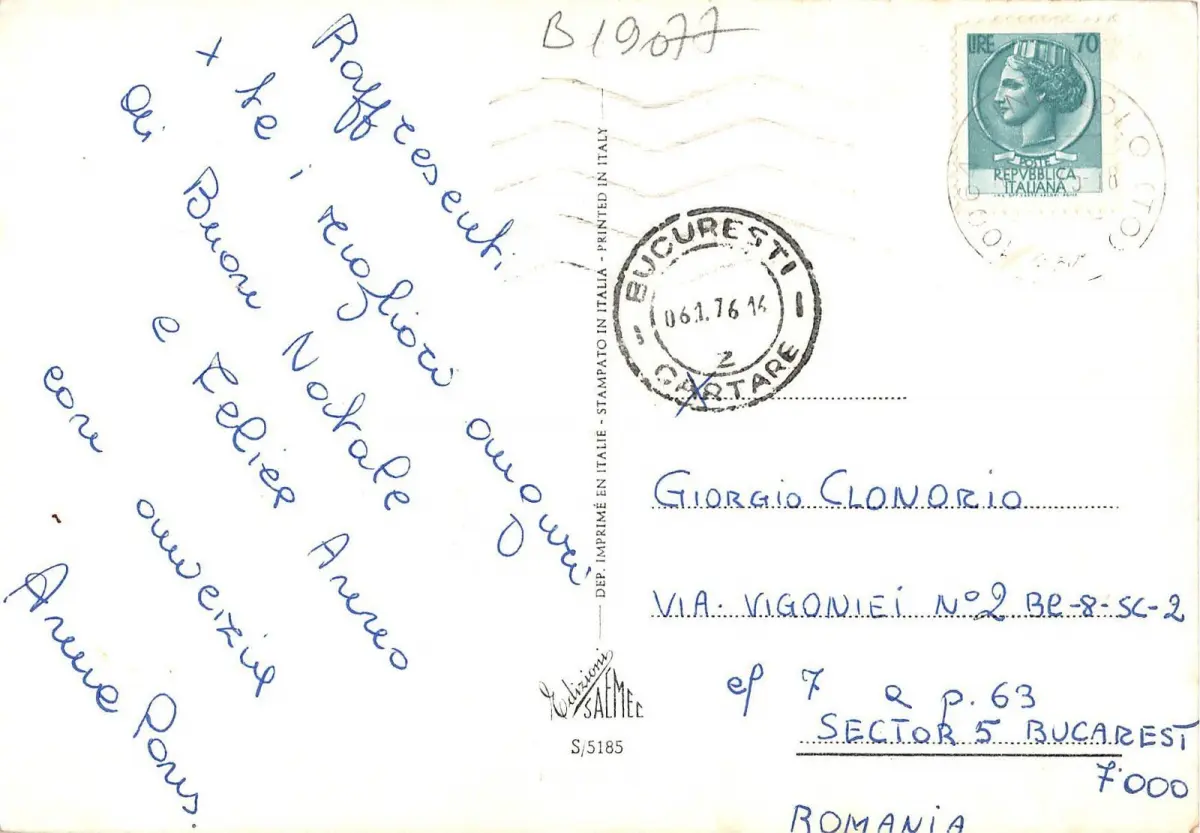 B19077
Raffresenti
x te i migliori auguri
di Buon Natale
e Felice Anno
con amicizia
DEP. IMPRIMÉ EN ITALIE - STAMPATO IN ITALIA - PRINTED IN ITALY
Edizioni
SAEMEC
S/5185
LIRE 70
POSTE
REPVBBLICA
ITALIANA
BUCURESTI
06.1.76 14
2
CARTARE
GIORGIO CLONORIO
VIA. VIGONIEI Nº2 BL-8-SC-2
ef 7 a p. 63
SECTOR 5 BUCAREST
7000
ROMANIA